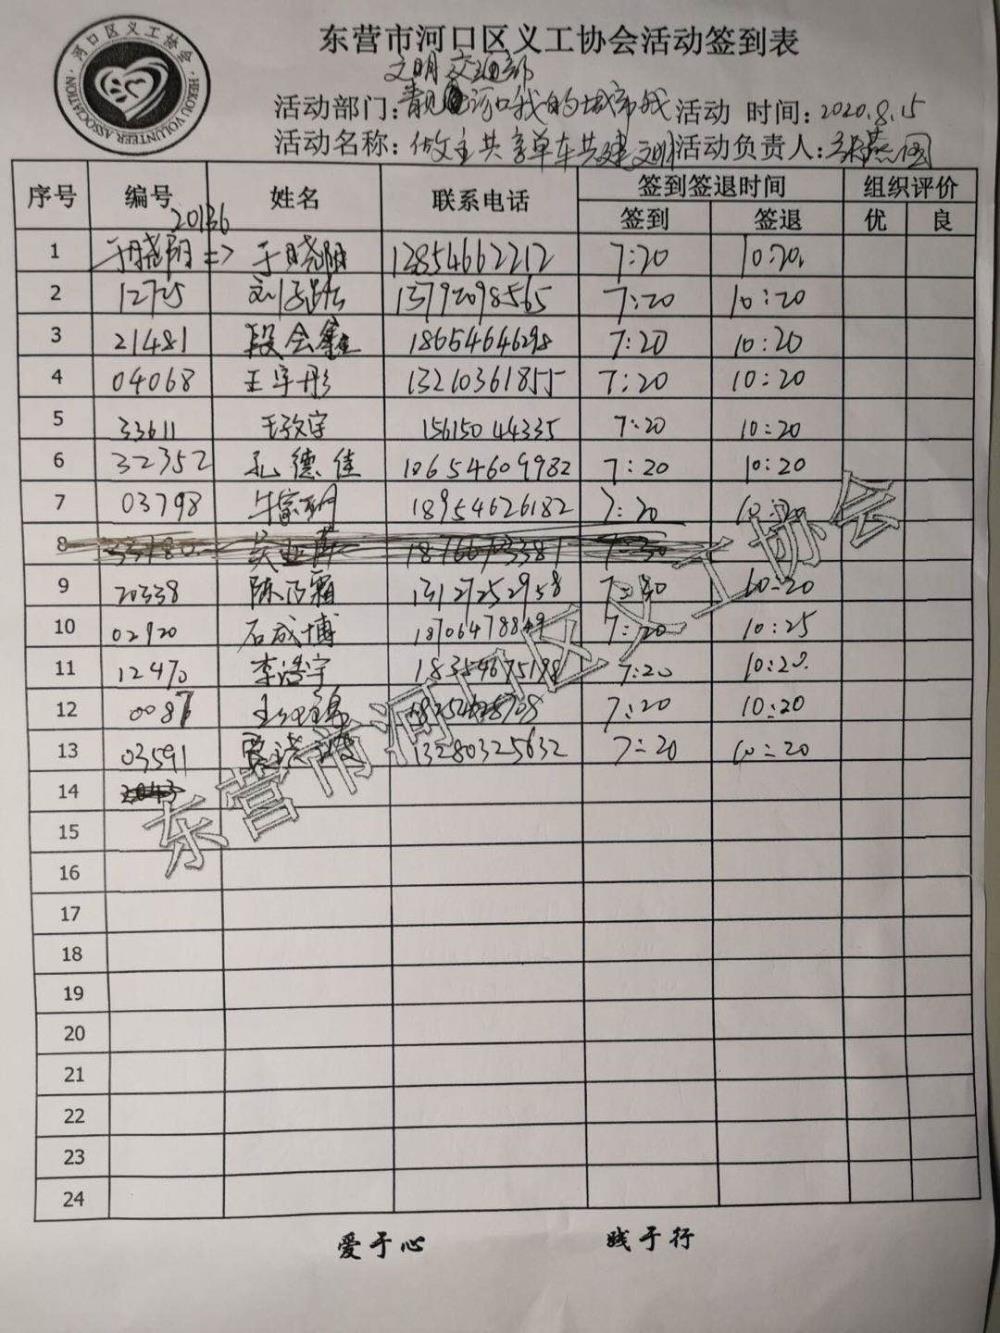 河口区义工协会
HEKOU VOLUNTEER ASSOCIATION
东营市河口区义工协会活动签到表
文明交通部
活动部门：靓河口我的城市我 活动 时间：2020.8.15
活动名称：做主共享单车共建文明 活动负责人：
序号 编号 姓名 联系电话 签到签退时间 组织评价
签到 签退 优 良
20136
1 于晓阳 => 于晓阳 12854662212 7:20 10:20
2 12725 13792098565 7:20 10:20
3 21481 段会鑫 18654646298 7:20 10:20
4 04068 王宇彤 13210361855 7:20 10:20
5 33611 15615044335 7:20 10:20
6 32352 孔德佳 18654609982 7:20 10:20
7 03798 牛富明 18954626182 7:20 10:20
8
9 20338 陈乃霜 13127252958 10:20
10 02920 石成博 7:20 10:25
11 12470 李浩宇 18354675198 7:20 10:20
12 0087 7:20 10:20
13 03591 13280325632 7:20 10:20
14
15
16
17
18
19
20
21
22
23
24
东营市河口区义工协会
爱于心 践于行